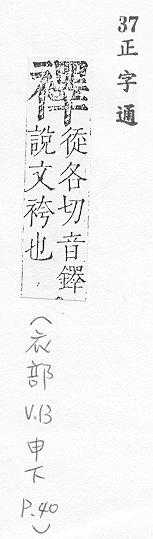 37
正字通
襗
從各切音鐸
說文袴也
(衣部 V.13 申下 P.40)